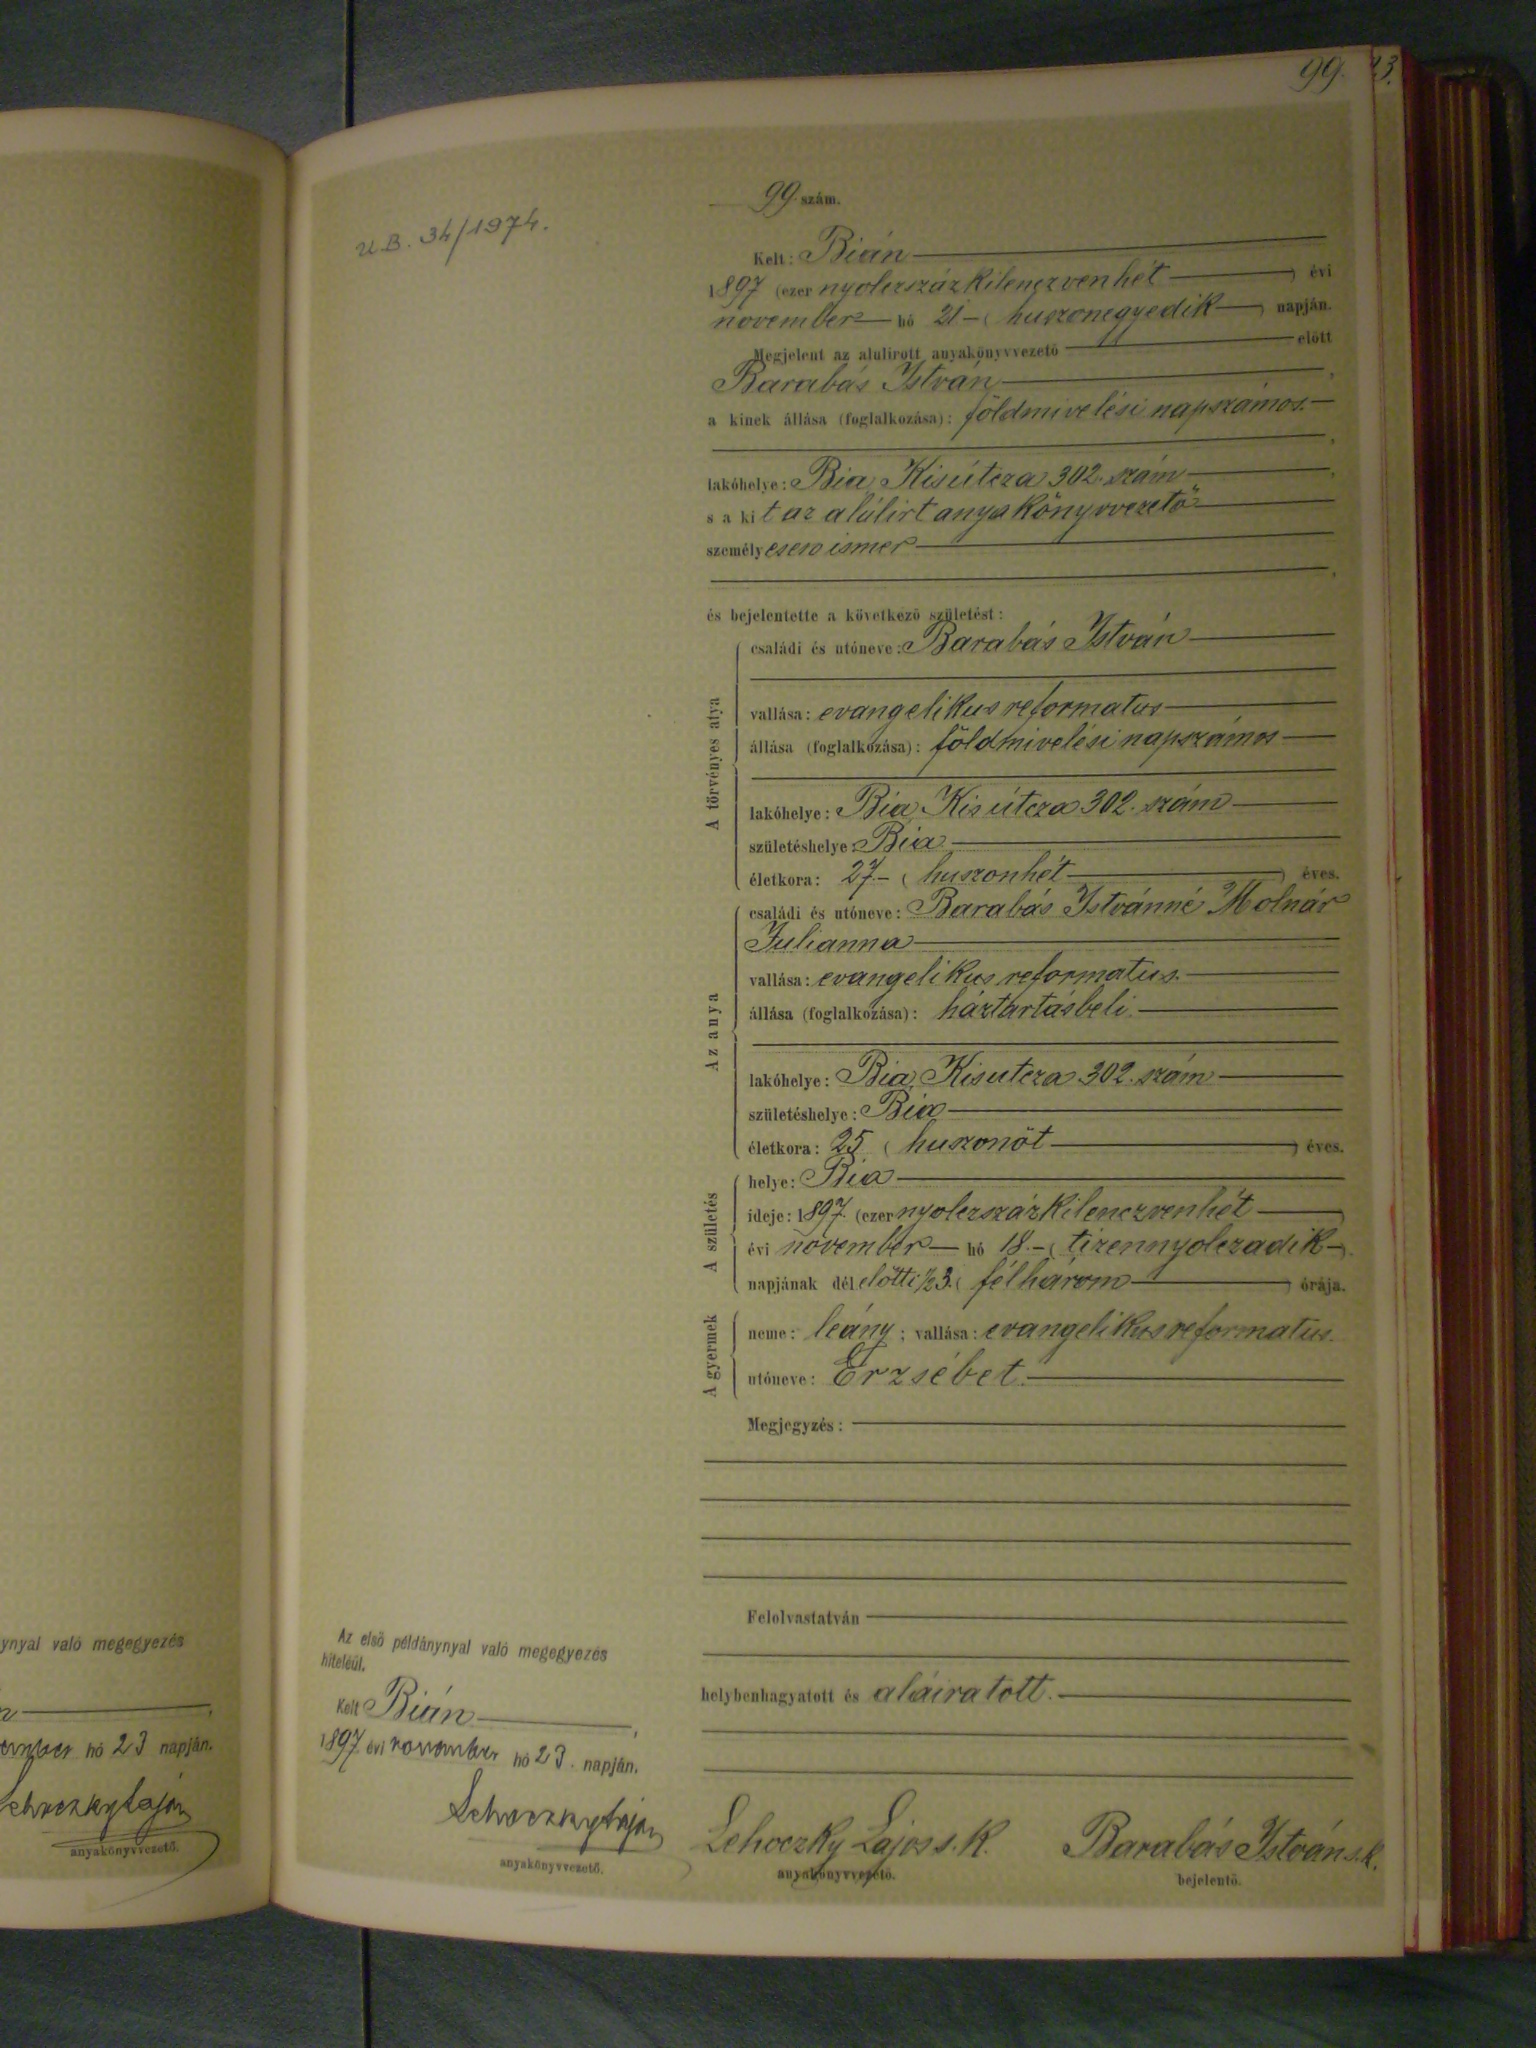 99.
23.
U.B. 34/1974.
99. szám.
Kelt: Bián
1897 (ezer nyolczszázkilenczvenhét) évi
november hó 21 (huszonegyedik) napján.
Megjelent az alulirott anyakönyvvezető előtt
Barabás István,
a kinek állása (foglalkozása): földmivelési napszámos.
lakóhelye: Bia, Kisútcza 302. szám,
s a kit az alúlirt anyakönyvvezető
személyesen ismer
és bejelentette a következő születést:
A törvényes atya
családi és utóneve: Barabás István
vallása: evangelikus reformatus
állása (foglalkozása): földmivelési napszámos
lakóhelye: Bia, Kisútcza 302. szám
születéshelye: Bia
életkora: 27 (huszonhét) éves.
Az anya
családi és utóneve: Barabás Istvánné Molnár
Julianna
vallása: evangelikus reformatus.
állása (foglalkozása): háztartásbeli.
lakóhelye: Bia, Kisutcza 302. szám
születéshelye: Bia
életkora: 25 (huszonöt) éves.
A születés
helye: Bia
ideje: 1897. (ezer nyolczszázkilenczvenhét)
évi november hó 18. (tizennyolczadik).
napjának dél előtti ½3. (félhárom) órája.
A gyermek
neme: leány; vallása: evangelikus reformatus.
utóneve: Erzsébet.
Megjegyzés:
Felolvastatván
helybenhagyatott és aláiratott.
Lehoczky Lajos s. k.
anyakönyvvezető.
Barabás István s. k.
bejelentő.
Az első példánynyal való megegyezés
hiteléül.
Kelt Bián,
1897. évi november hó 23. napján.
Lehoczky Lajos
anyakönyvvezető.
ynyal való megegyezés
ember hó 23 napján.
Lehoczky Lajos
anyakönyvvezető.